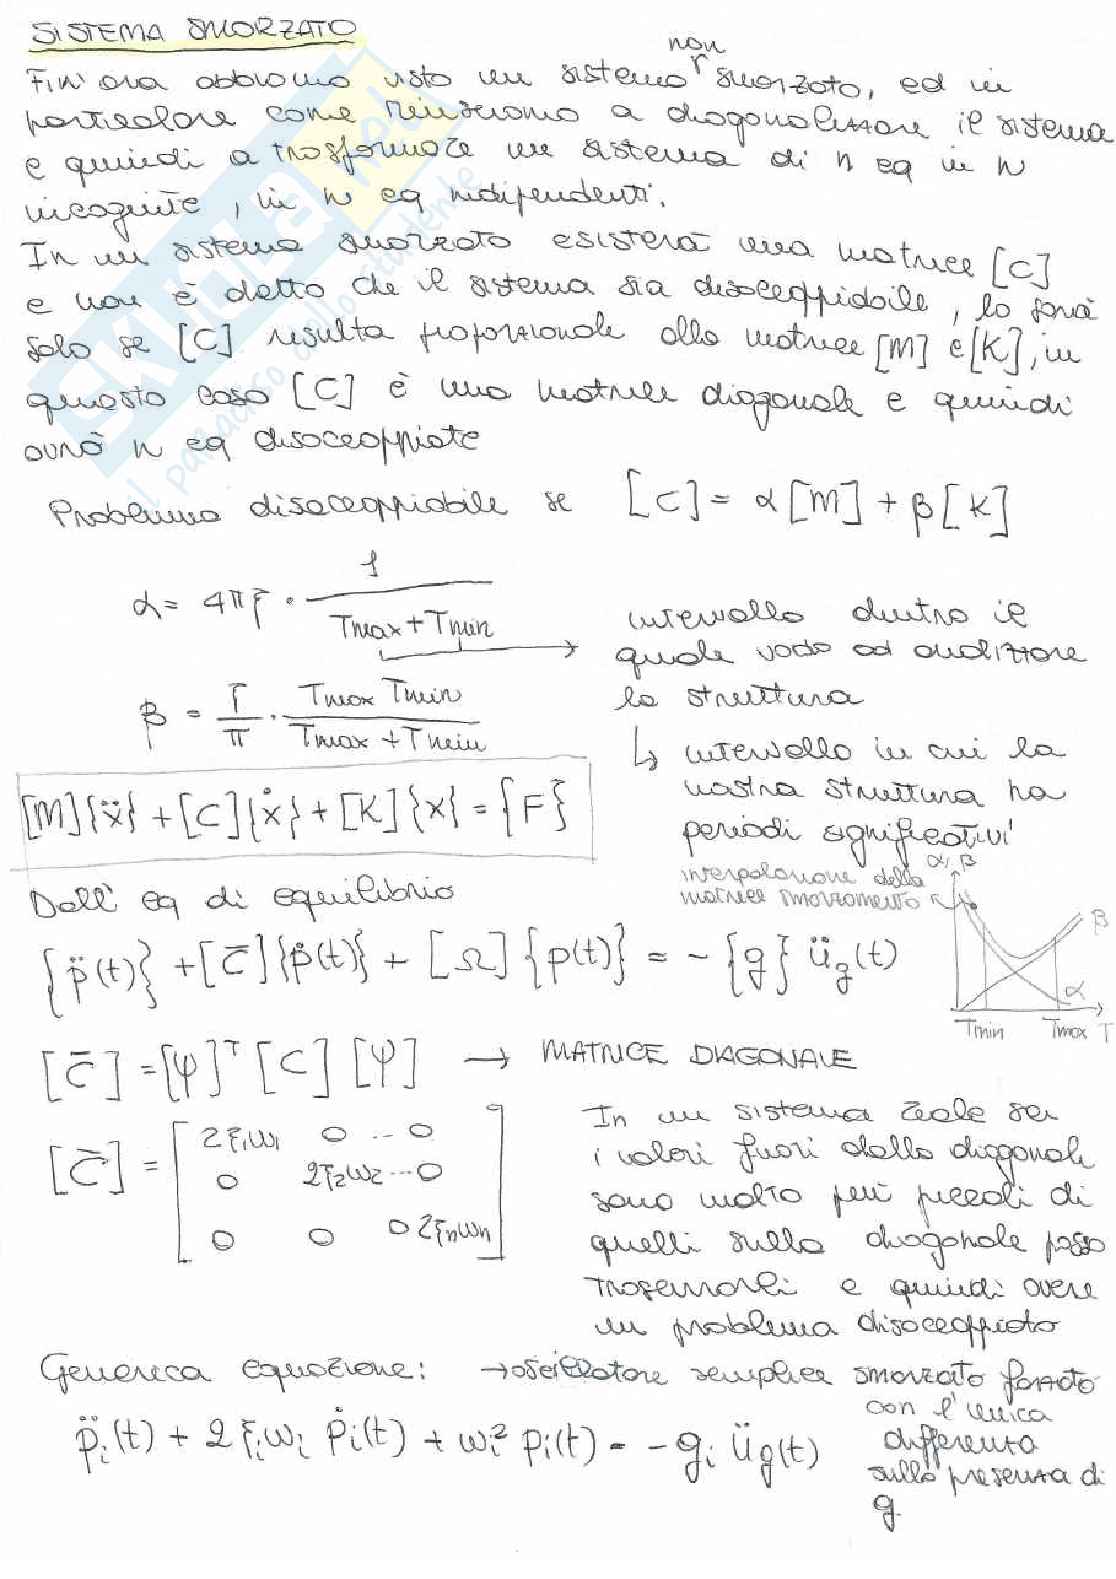 SISTEMA SMORZATO
Fin'ora abbiamo visto un sistema non smorzato, ed in
particolare come riusciamo a diagonalizzare il sistema
e quindi a trasformare un sistema di n eq in n
incognite, in n eq indipendenti.
In un sistema smorzato esisterà una matrice [C]
e non è detto che il sistema sia disaccoppiabile, lo sarà
solo se [C] risulta proporzionale alla matrice [M] e [K], in
questo caso [C] è una matrice diagonale e quindi
avrò n eq disaccoppiate
Problema disaccoppiabile se [C] = α[M] + β[K]
α = 4πξ · 1 / (Tmax + Tmin)
→ intervallo dentro il
quale vado ad analizzare
la struttura
β = ξ/π · Tmax Tmin / (Tmax + Tmin)
↳ intervallo in cui la
nostra struttura ha
periodi significativi
[M]{ẍ} + [C]{ẋ} + [K]{x} = {F}
interpolazione della
matrice smorzamento
α, β
β
α
Tmin Tmax T
Dall'eq di equilibrio
{p̈(t)} + [C̄]{ṗ(t)} + [Ω]{p(t)} = -{g} üg(t)
[C̄] = [ψ]ᵀ [C] [ψ] → MATRICE DIAGONALE
[C̄] = [ 2ξ₁ω₁ 0 ... 0
0 2ξ₂ω₂ ... 0
0 0 0 2ξnωn ]
In un sistema reale se
i valori fuori dalla diagonale
sono molto più piccoli di
quelli sulla diagonale posso
trascurarli e quindi avere
un problema disaccoppiato
Generica equazione: → oscillatore semplice smorzato forzato
con l'unica
differenza
sulla presenza di
g
p̈i(t) + 2ξiωi ṗi(t) + ωi² pi(t) = -gi üg(t)
SKUOLA.net
il paradiso dello studente